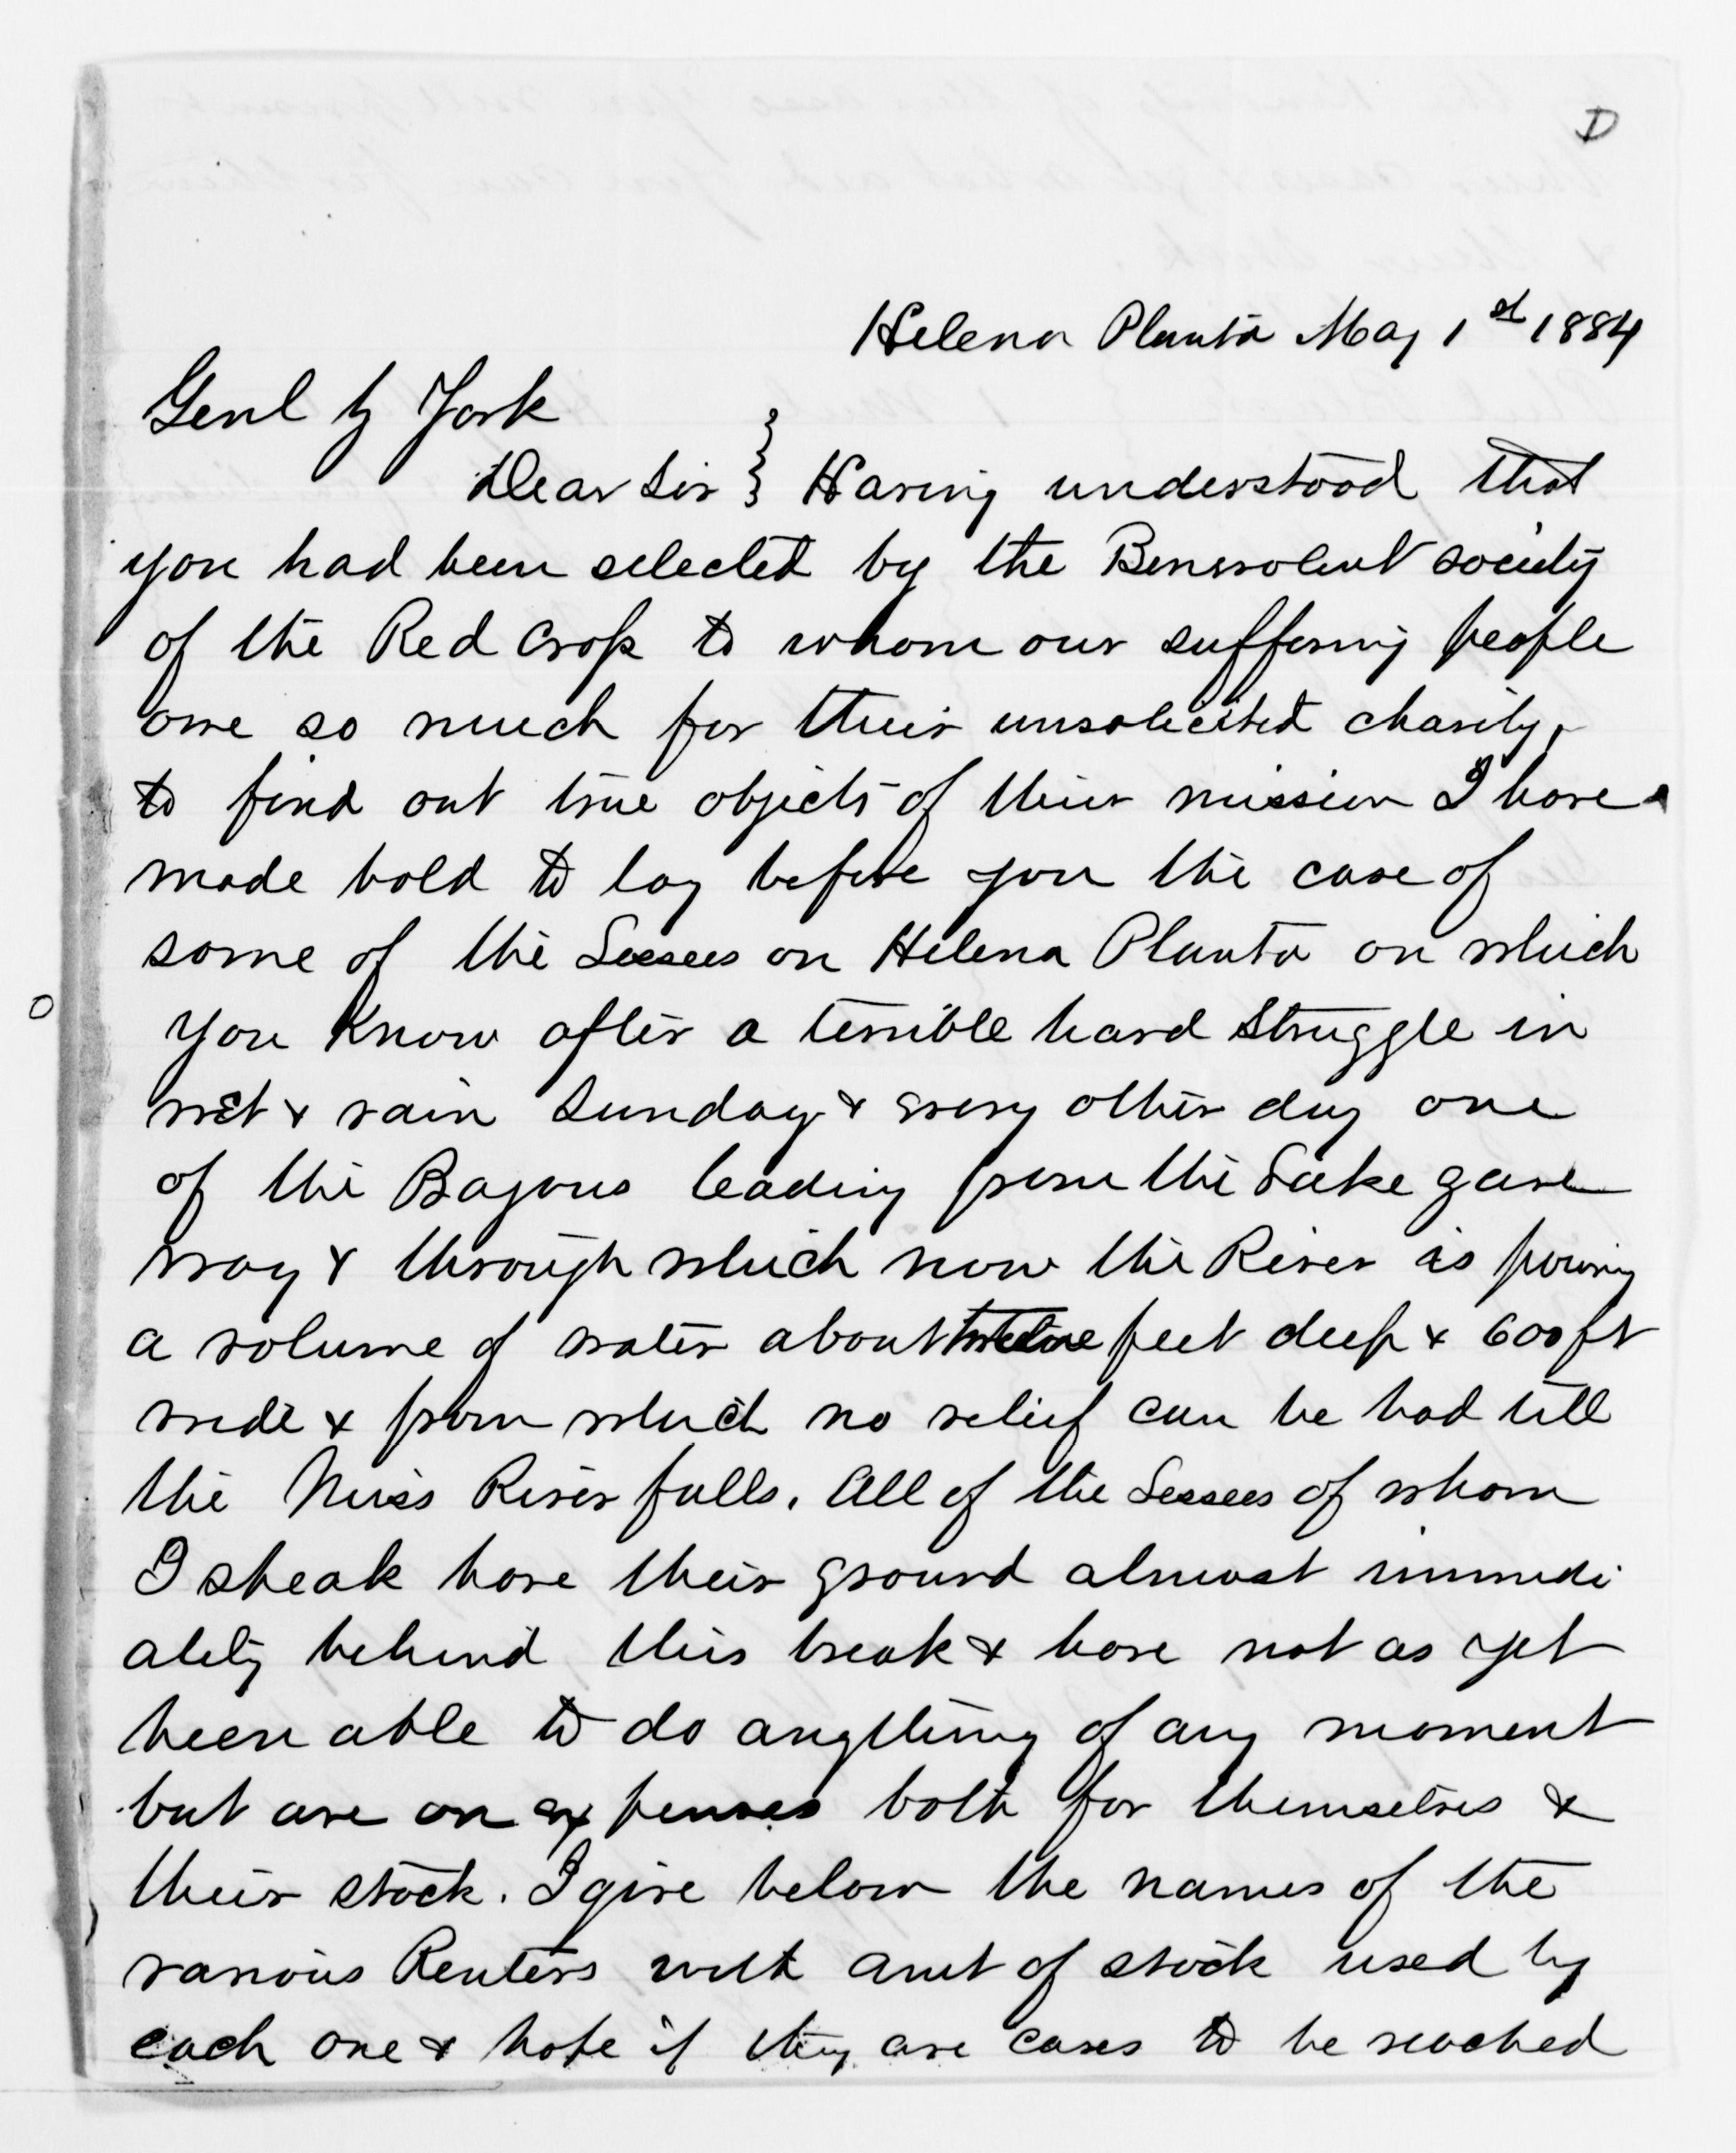 D
Helena Planta May 1st 1884
Genl Z York
Dear Sir } Having understood that
you had been selected by the Benevolent society
of the Red Cross to whom our suffering people
owe so much for their unsolicited charity,
to find out true objects of their mission I have
made bold to lay before you the case of
some of the Lessees on Helena Planta on which
you Know after a terrible hard Struggle in
wet & rain Sunday & every other day one
of the Bayous leading from the Lake gave
way & through which now the River is pouring
a volume of water about twelve feet deep & 600 ft
wide & from which no relief can be had till
the Miss River falls. All of the Lessees of whom
I speak have their ground almost immedi
ately behind this break & have not as yet
been able to do anything of any moment
but are on expenses both for themselves &
their stock. I give below the names of the
various Renters with amt of stock used by
each one & hope if they are cases to be reached